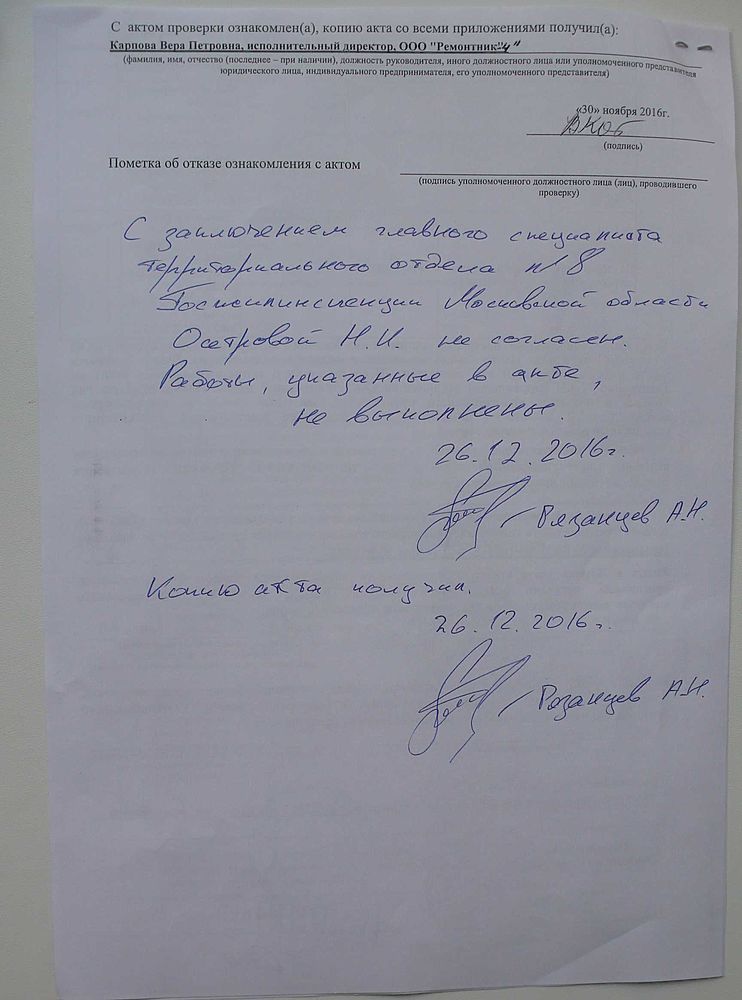 С актом проверки ознакомлен(а), копию акта со всеми приложениями получил(а):
Карпова Вера Петровна, исполнительный директор, ООО "Ремонтник-4"
(фамилия, имя, отчество (последнее – при наличии), должность руководителя, иного должностного лица или уполномоченного представителя
юридического лица, индивидуального предпринимателя, его уполномоченного представителя)
«30» ноября 2016г.
(подпись)
Пометка об отказе ознакомления с актом
(подпись уполномоченного должностного лица (лиц), проводившего
проверку)
С заключением главного специалиста
территориального отдела №8
Госжилинспекции Московской области
Осетровой Н.И. не согласен.
Работы, указанные в акте,
не выполнены.
26.12.2016г.
Рязанцев А.Н.
Копию акта получил.
26.12.2016г.
Рязанцев А.Н.